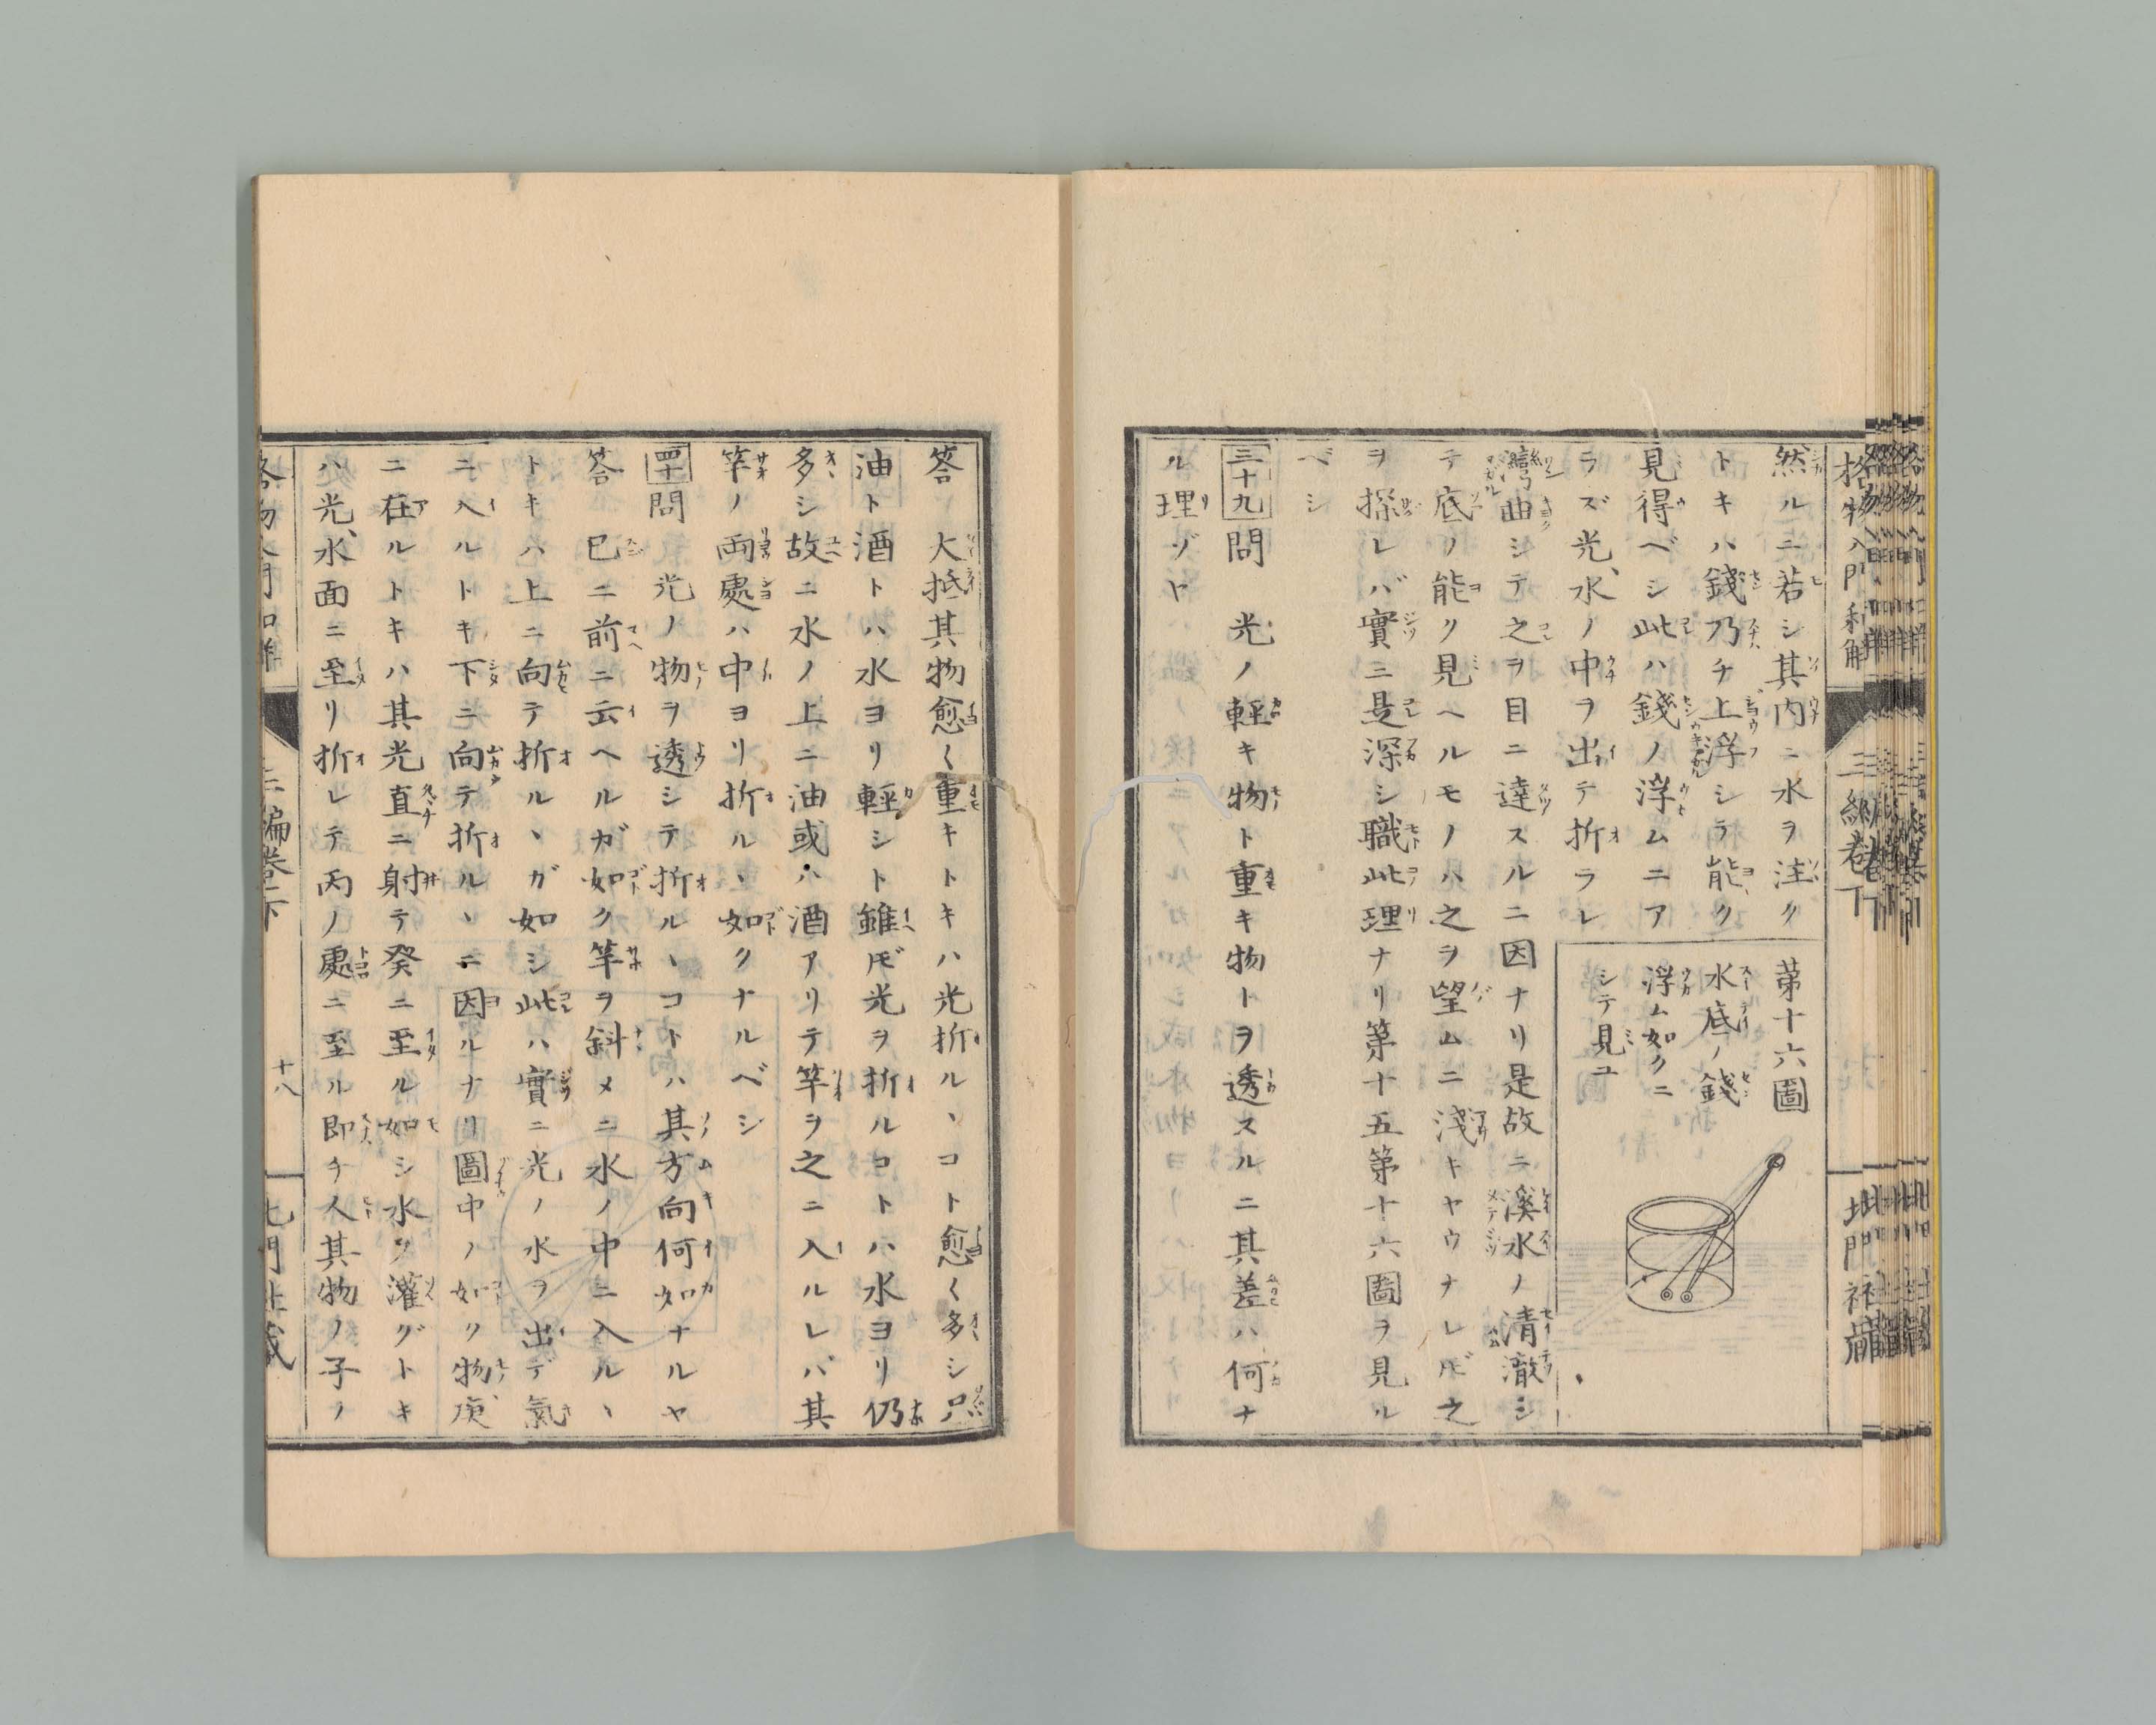 格物入門和解
三編巻下
北門社蔵
然ルニ若シ其内ニ水ヲ注ク
トキハ錢乃チ上浮シテ能ク
見得ベシ此ハ錢ノ浮ムニア
ラズ光、水ノ中ヲ出テ折ラレ
彎曲シテ之ヲ目ニ達スルニ因ナリ是故ニ溪水ノ清澈シ
テ底ノ能ク見ヘルモノハ之ヲ望ムニ淺キヤウナレ𪜈之
ヲ探レバ實ニ是深シ職此理ナリ第十五第十六圖ヲ見ル
ベシ
第十六圖
水底ノ錢
浮ム如クニ
シテ見ユ
三十九問　光ノ輕キ物ト重キ物トヲ透スルニ其差ハ何ナ
ル理ゾヤ
答　大抵其物愈〱重キトキハ光折ルヽコト愈〱多シ只
油ト酒トハ水ヨリ輕シト雖𪜈光ヲ折ルコトハ水ヨリ仍
多シ故ニ水ノ上ニ油或ハ酒アリテ竿ヲ之ニ入ルレバ其
竿ノ両處ハ中ヨリ折ルヽ如クナルベシ
四十問　光ノ物ヲ透シテ折ルヽコトハ其方向何如ナルヤ
答　已ニ前ニ云ヘルガ如ク竿ヲ斜メニ水ノ中ニ入ルヽ
トキハ上ニ向テ折ルヽガ如シ此ハ實ニ光ノ水ヲ出デ氣
ニ入ルトキ下ニ向テ折ルヽニ因ルナリ圖中ノ如ク物、庚
ニ在ルトキハ其光直ニ射テ癸ニ至ル如シ水ヲ灌グトキ
ハ光、水面ニ至リ折レテ丙ノ處ニ至ル即チ人其物ノ子ノ
三編巻下
十八